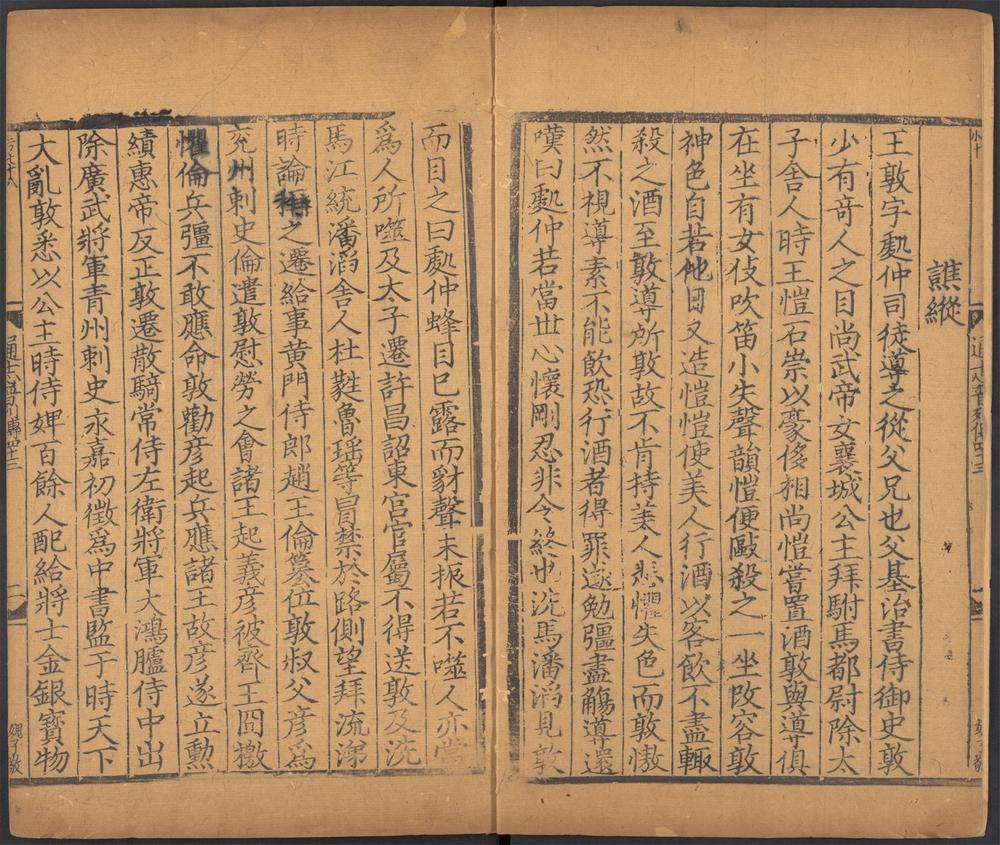 譙縱
王敦字䖏仲司徒導之從父兄也父基治書侍御史敦
少有奇人之目尚武帝女襄城公主拜駙馬都尉除太
子舍人時王愷石崇以豪侈相尚愷嘗置酒敦與導俱
在坐有女伎吹笛小失聲韻愷便毆殺之一坐改容敦
神色自若他日又造愷愷使美人行酒以客飲不盡輙
殺之酒至敦導所敦故不肯持美人悲懼失色而敦慠
然不視導素不能飲恐行酒者得罪遂勉彊盡觴導還
嘆曰䖏仲若當世心懷剛忍非令終也洗馬潘滔見敦
而目之曰䖏仲蜂目已露而豺聲未振若不噬人亦當
爲人所噬及太子遷許昌詔東宮官屬不得送敦及洗
馬江統潘滔舍人杜蕤魯瑶等冒禁於路側望拜流涕
時論稱之遷給事黃門侍郎趙王倫篡位敦叔父彦爲
兖州刺史倫遣敦慰勞之會諸王起義彦被齊王冏檄
懼倫兵彊不敢應命敦勸彦起兵應諸王故彦遂立勳
績惠帝反正敦遷散騎常侍左衛將軍大鴻臚侍中出
除廣武將軍青州刺史永嘉初徵爲中書監于時天下
大亂敦悉以公主時侍婢百餘人配給將士金銀寶物